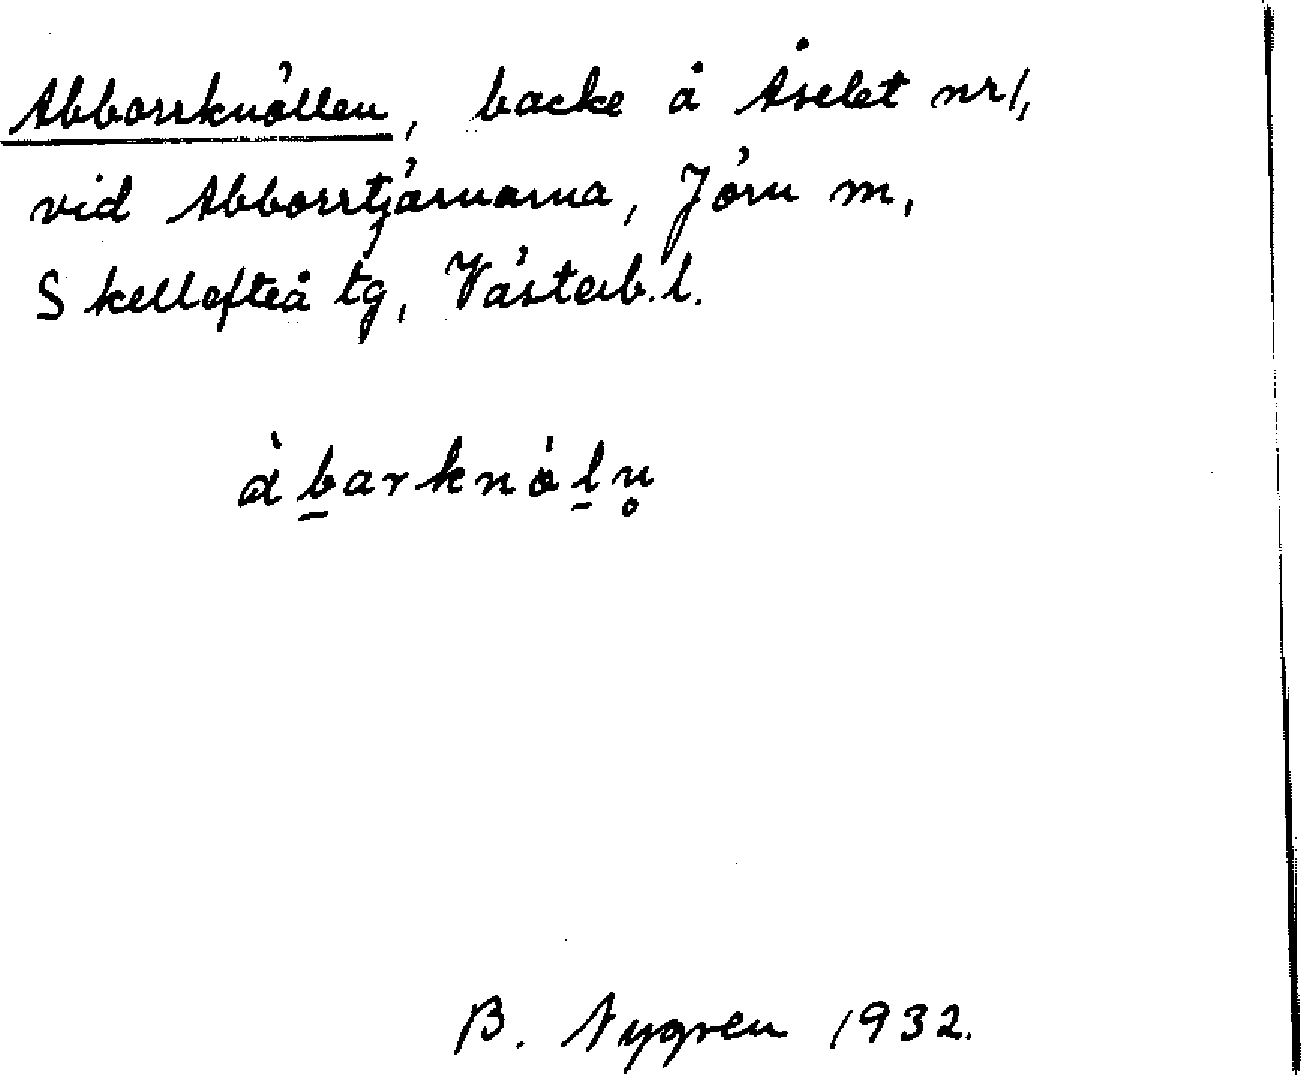 Abborrknöllen, backe å Åselet nr 1,
vid Abborrtjärnarna, Jörn m,
Skellefteå tg, Västerb. l.
àb̲arknòl̲n̥
B. Nygren 1932.